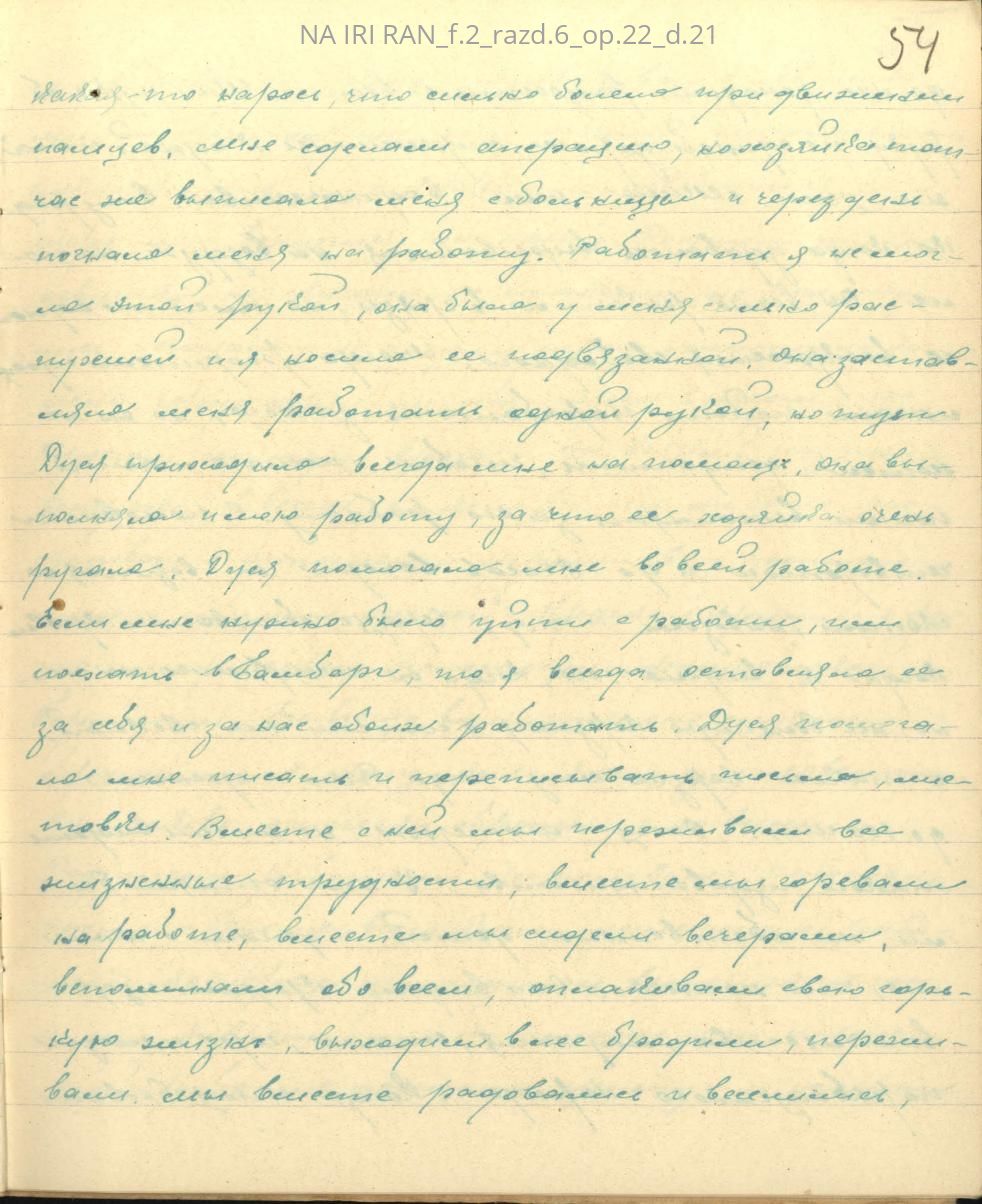 NA IRI RAN_f.2_razd.6_op.22_d.21
54
какая-то нарось, что сильно болело при движении
пальцев. Мне сделали операцию, но хозяйка тот-
час же выписала меня с больницы и через день
погнала меня на работу. Работать я не мог-
ла этой рукой, она была у меня сильно рас-
пухшей и я носила ее подвязанной. Она застав-
ляла меня работать одной рукой, но тут
Дуся приходила всегда мне на помощь, она вы-
полняла и мою работу, за что ее хозяйка очень
ругала. Дуся помогала мне во всей работе.
Если мне нужно было уйти с работы, или
поехать в Бамберг, то я всегда оставляла ее
за себя и за нас обоих работать. Дуся помога-
ла мне писать и переписывать письма, лис-
товки. Вместе с ней мы переживали все
жизненные трудности, вместе мы горевали
на работе, вместе мы сидели вечерами,
вспоминали обо всем, оплакивали свою горь-
кую жизнь, выходили в лес бродили, пережи-
вали. Мы вместе радовались и веселились,